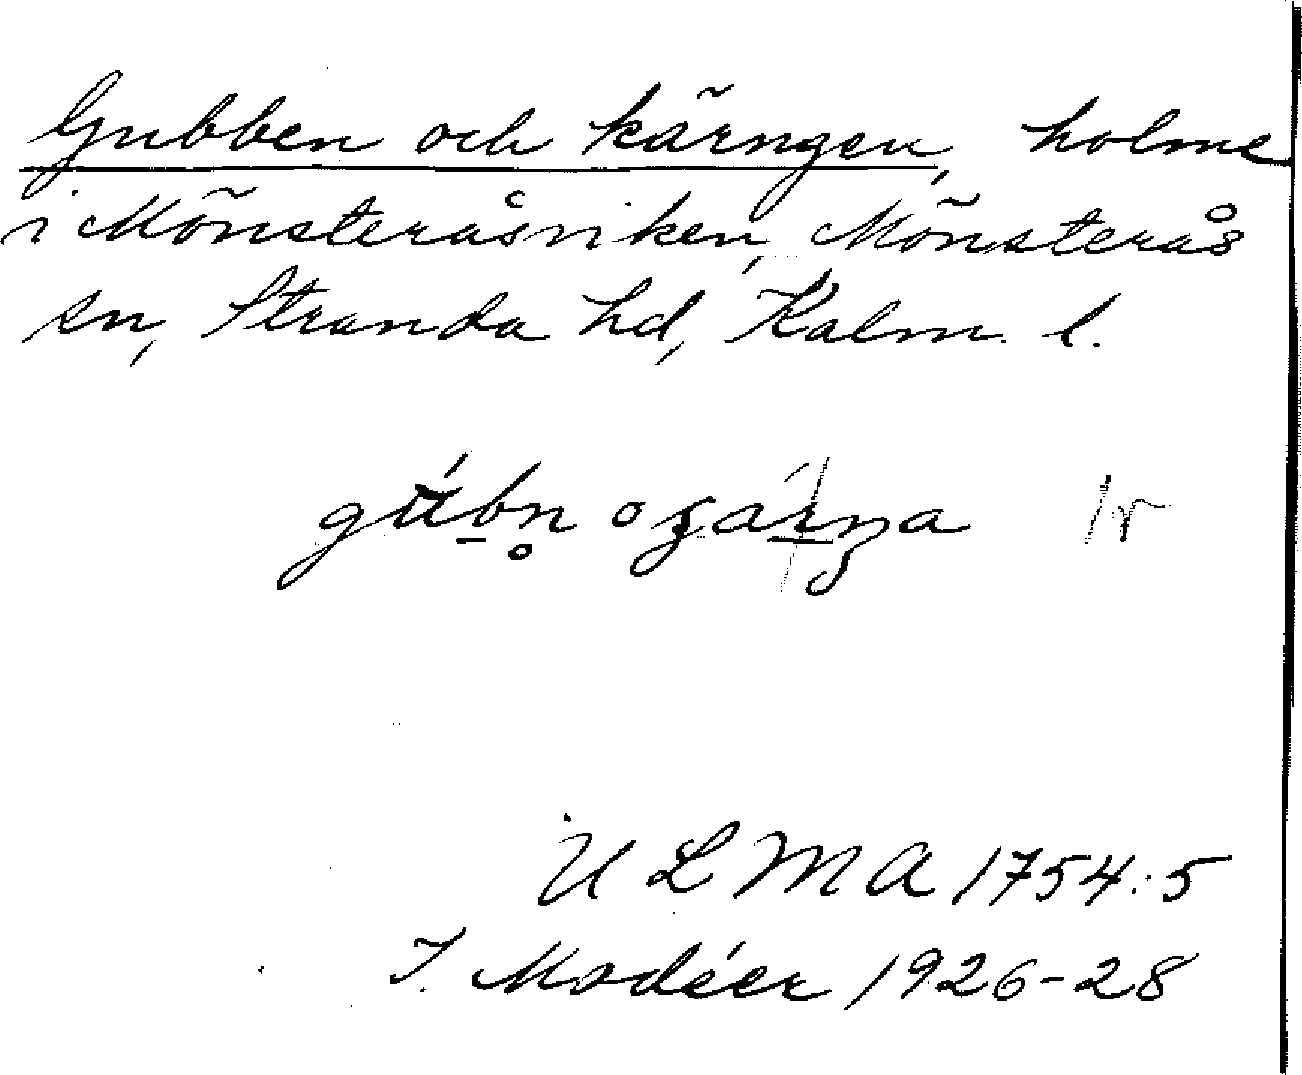 Gubben och kärngen, holme
i Mönsteråsviken, Mönsterås
sn, Stranda hd, Kalm. l.
ULMA 1754:5
I. Modéer 1926-28